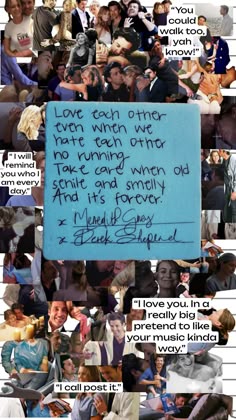 "You
could
walk too,
yah
know!"
Love each other
even when we
hate each other
no running.
Take care when old
senile and smelly
And it's forever.
"I will
remind
you who I
am every
day."
x Meredith Grey
x Derek Shepherd
"I love you. In a
really big
pretend to like
your music kinda
way."
"I call post it."